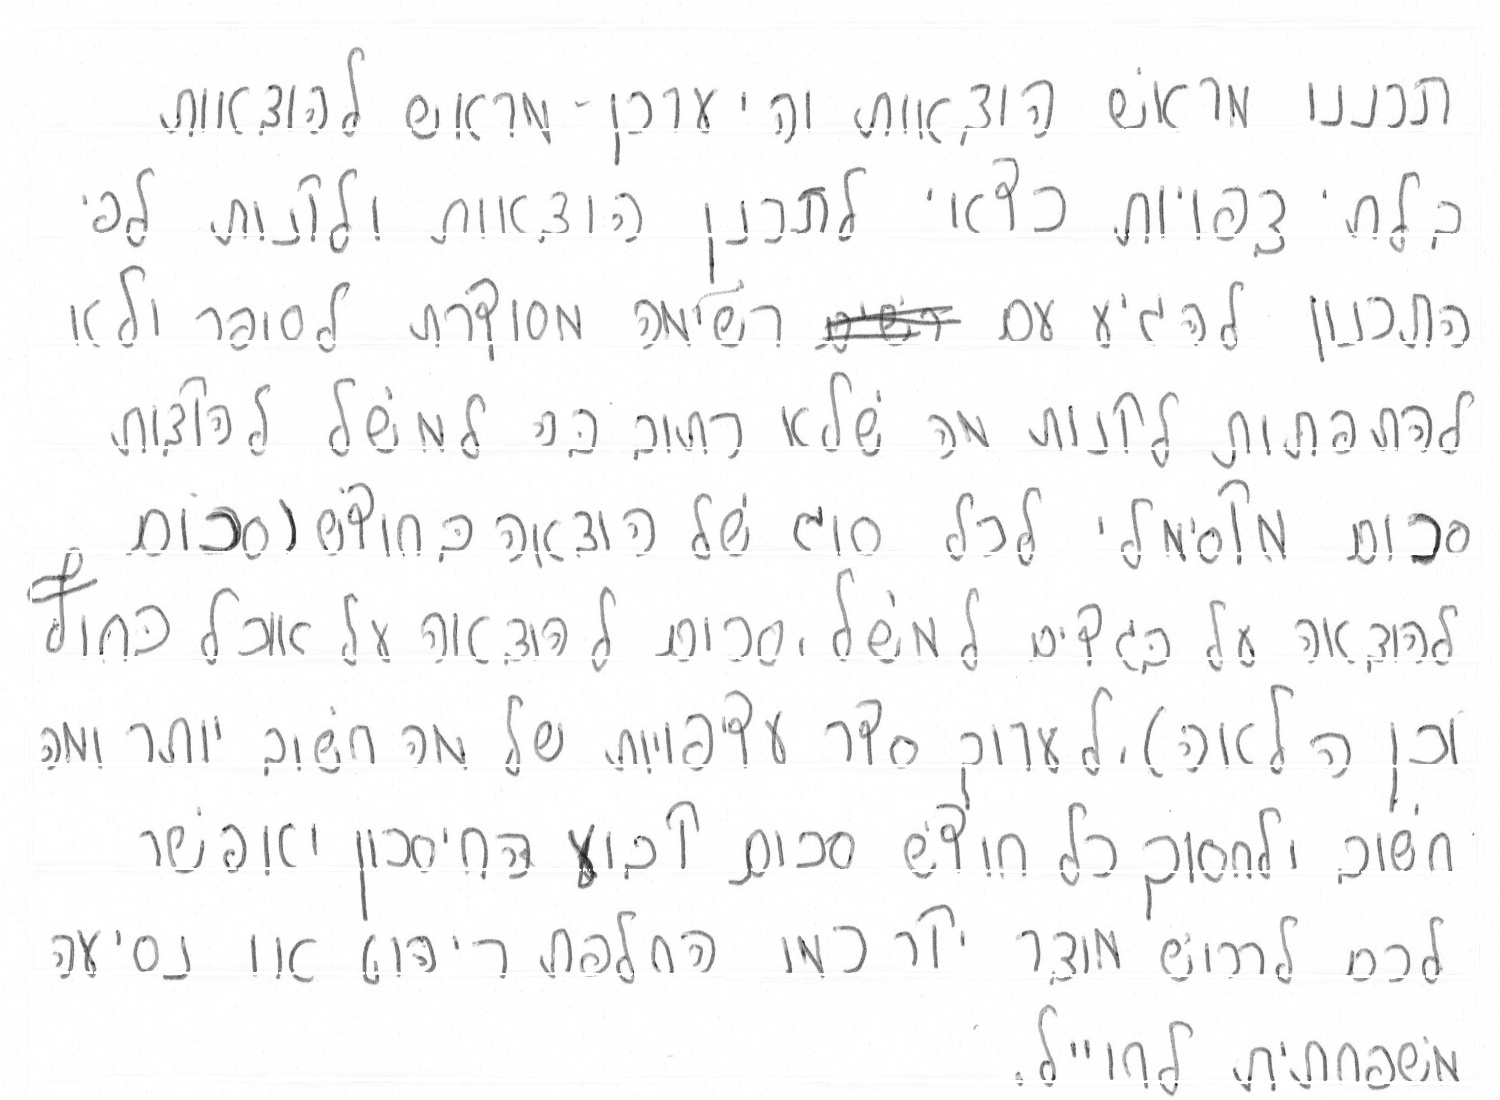 תכננו מראש הוצאות והיערכן-מראש להוצאות
בלתי צפויות כדאי לתכנן הוצאות ולקנות לפי
התכנון להגיע עם רשימה מסודרת לסופר ולא
להתפתות לקנות מה שלא כתוב בה למשל להקצות
סכום מקסימלי לכל סוג של הוצאה בחודש (סכום
להוצאה על בגדים למשל, סכום להוצאה על אוכל בחודש
וכן הלאה), לערוך סדר עדיפויות של מה חשוב יותר ומה
חשוב ולחסוך כל חודש סכום קבוע החיסכון יאופשר
לכם לרכוש מוצר יקר כמו החלפת ריהוט או נסיעה
משפחתית לחוייל.